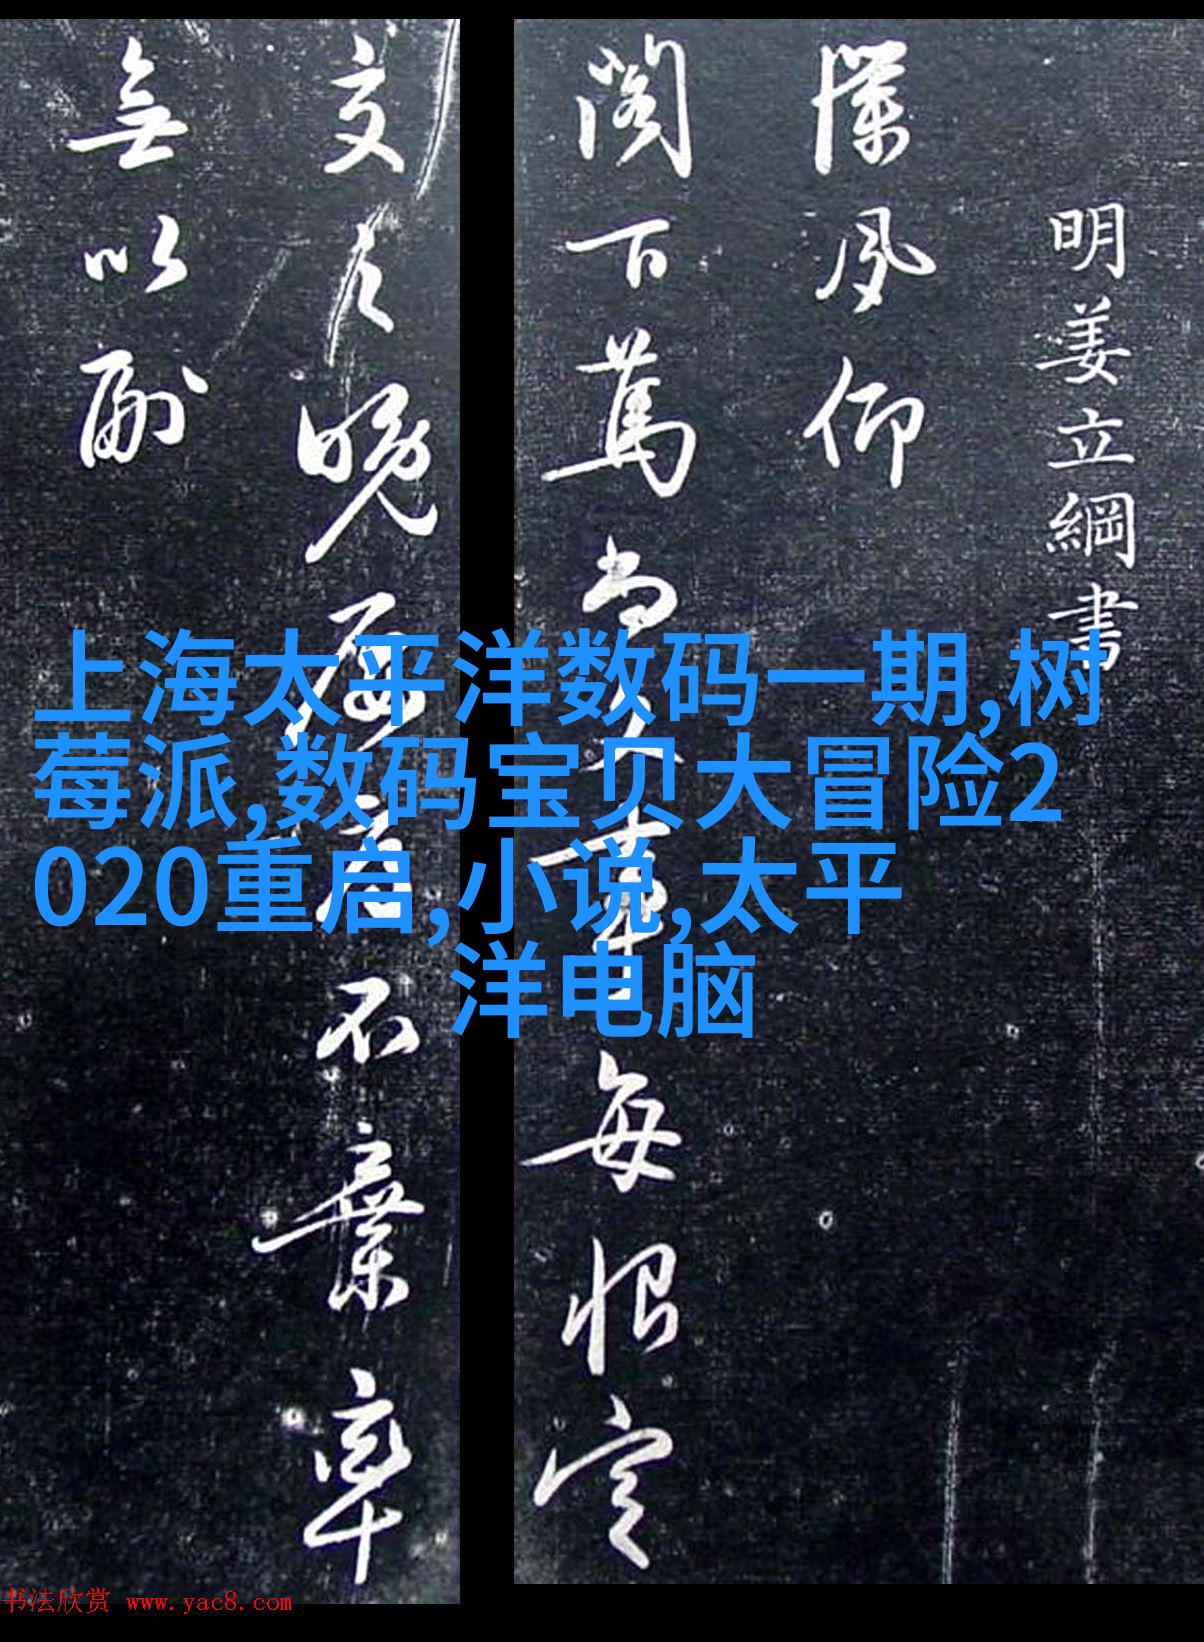 明姜立綱書
仰
閣百萬尚 每恨定
交 晚 不棄率
無以副
上海太平洋数码一期,树
莓派,数码宝贝大冒险2
020重启,小说,太平
洋电脑
书法欣赏 www.yac8.com